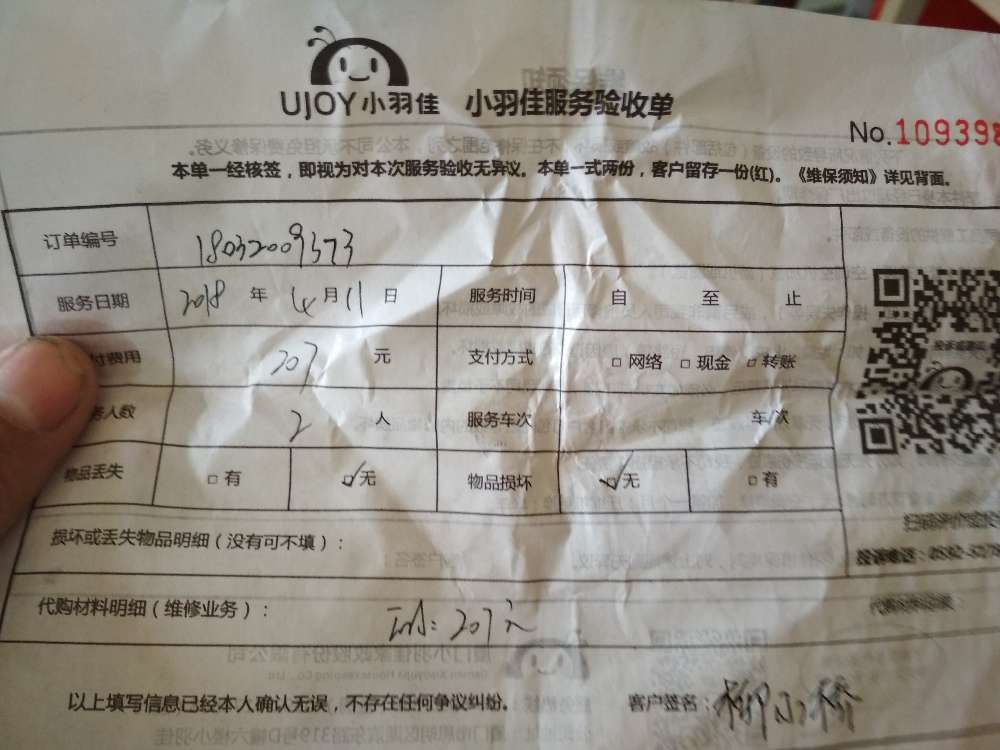 UJOY小羽佳 小羽佳服务验收单
No.109398
本单一经核签,即视为对本次服务验收无异议。本单一式两份,客户留存一份(红)。《维保须知》详见背面。
订单编号 18032009373
服务日期 2018 年 4 月 11 日 服务时间 自 至 止
付费用 207 元 支付方式 □ 网络 □ 现金 □ 转账
人数 2 人 服务车次 车/次
物品丢失 □ 有 ☑ 无 物品损坏 ☑ 无 □ 有
损坏或丢失物品明细(没有可不填):
投诉电话:0592-5275
代购材料明细(维修业务): 207元
以上填写信息已经本人确认无误,不存在任何争议纠纷。 客户签名:柳小桥